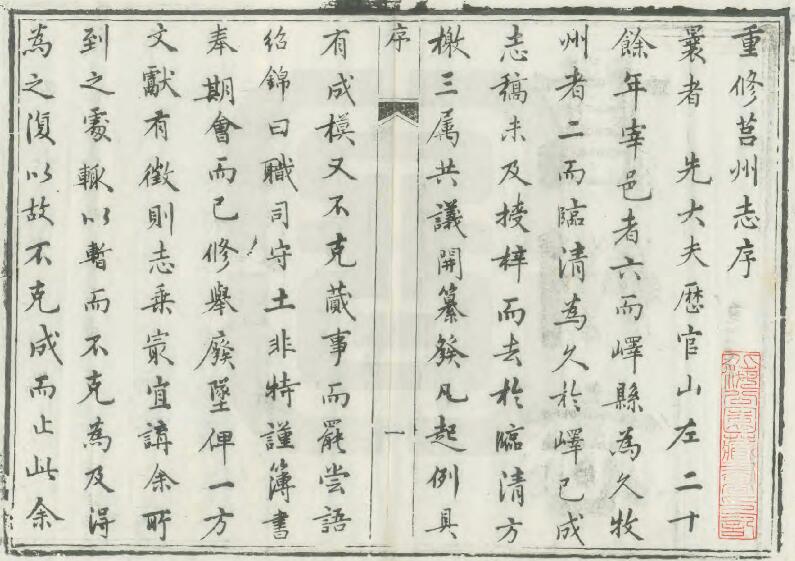 重修莒州志序
曩者　先大夫歷官山左二十
餘年宰邑者六而嶧縣為久牧
州者二而臨清為久於嶧已成
志稿未及授梓而去於臨清方
檄三属共議開纂發凡起例具
序
一
有成模又不克蕆事而罷嘗語
紹錦曰職司守土非特謹簿書
奉期會而已修舉廢墜俾一方
文獻有徵則志乘宣講余所
到之處輒以暫而不克為及得
為之復以故不克成而止此余